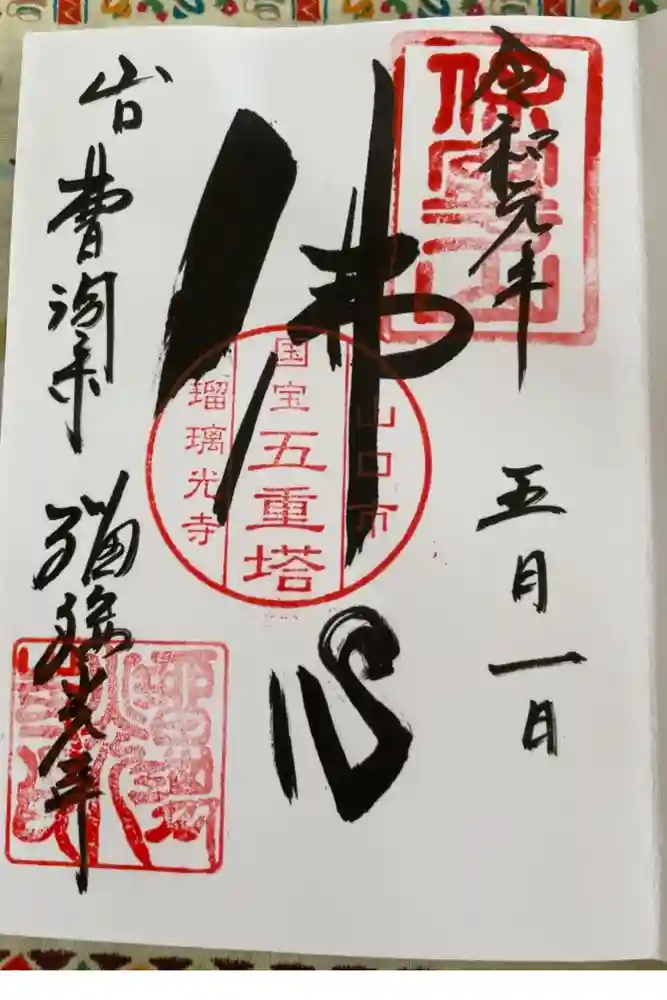 令和元年
五月一日
保寧山
佛心
山口市
国宝
五重塔
瑠璃光寺
曹洞宗
瑠璃光寺